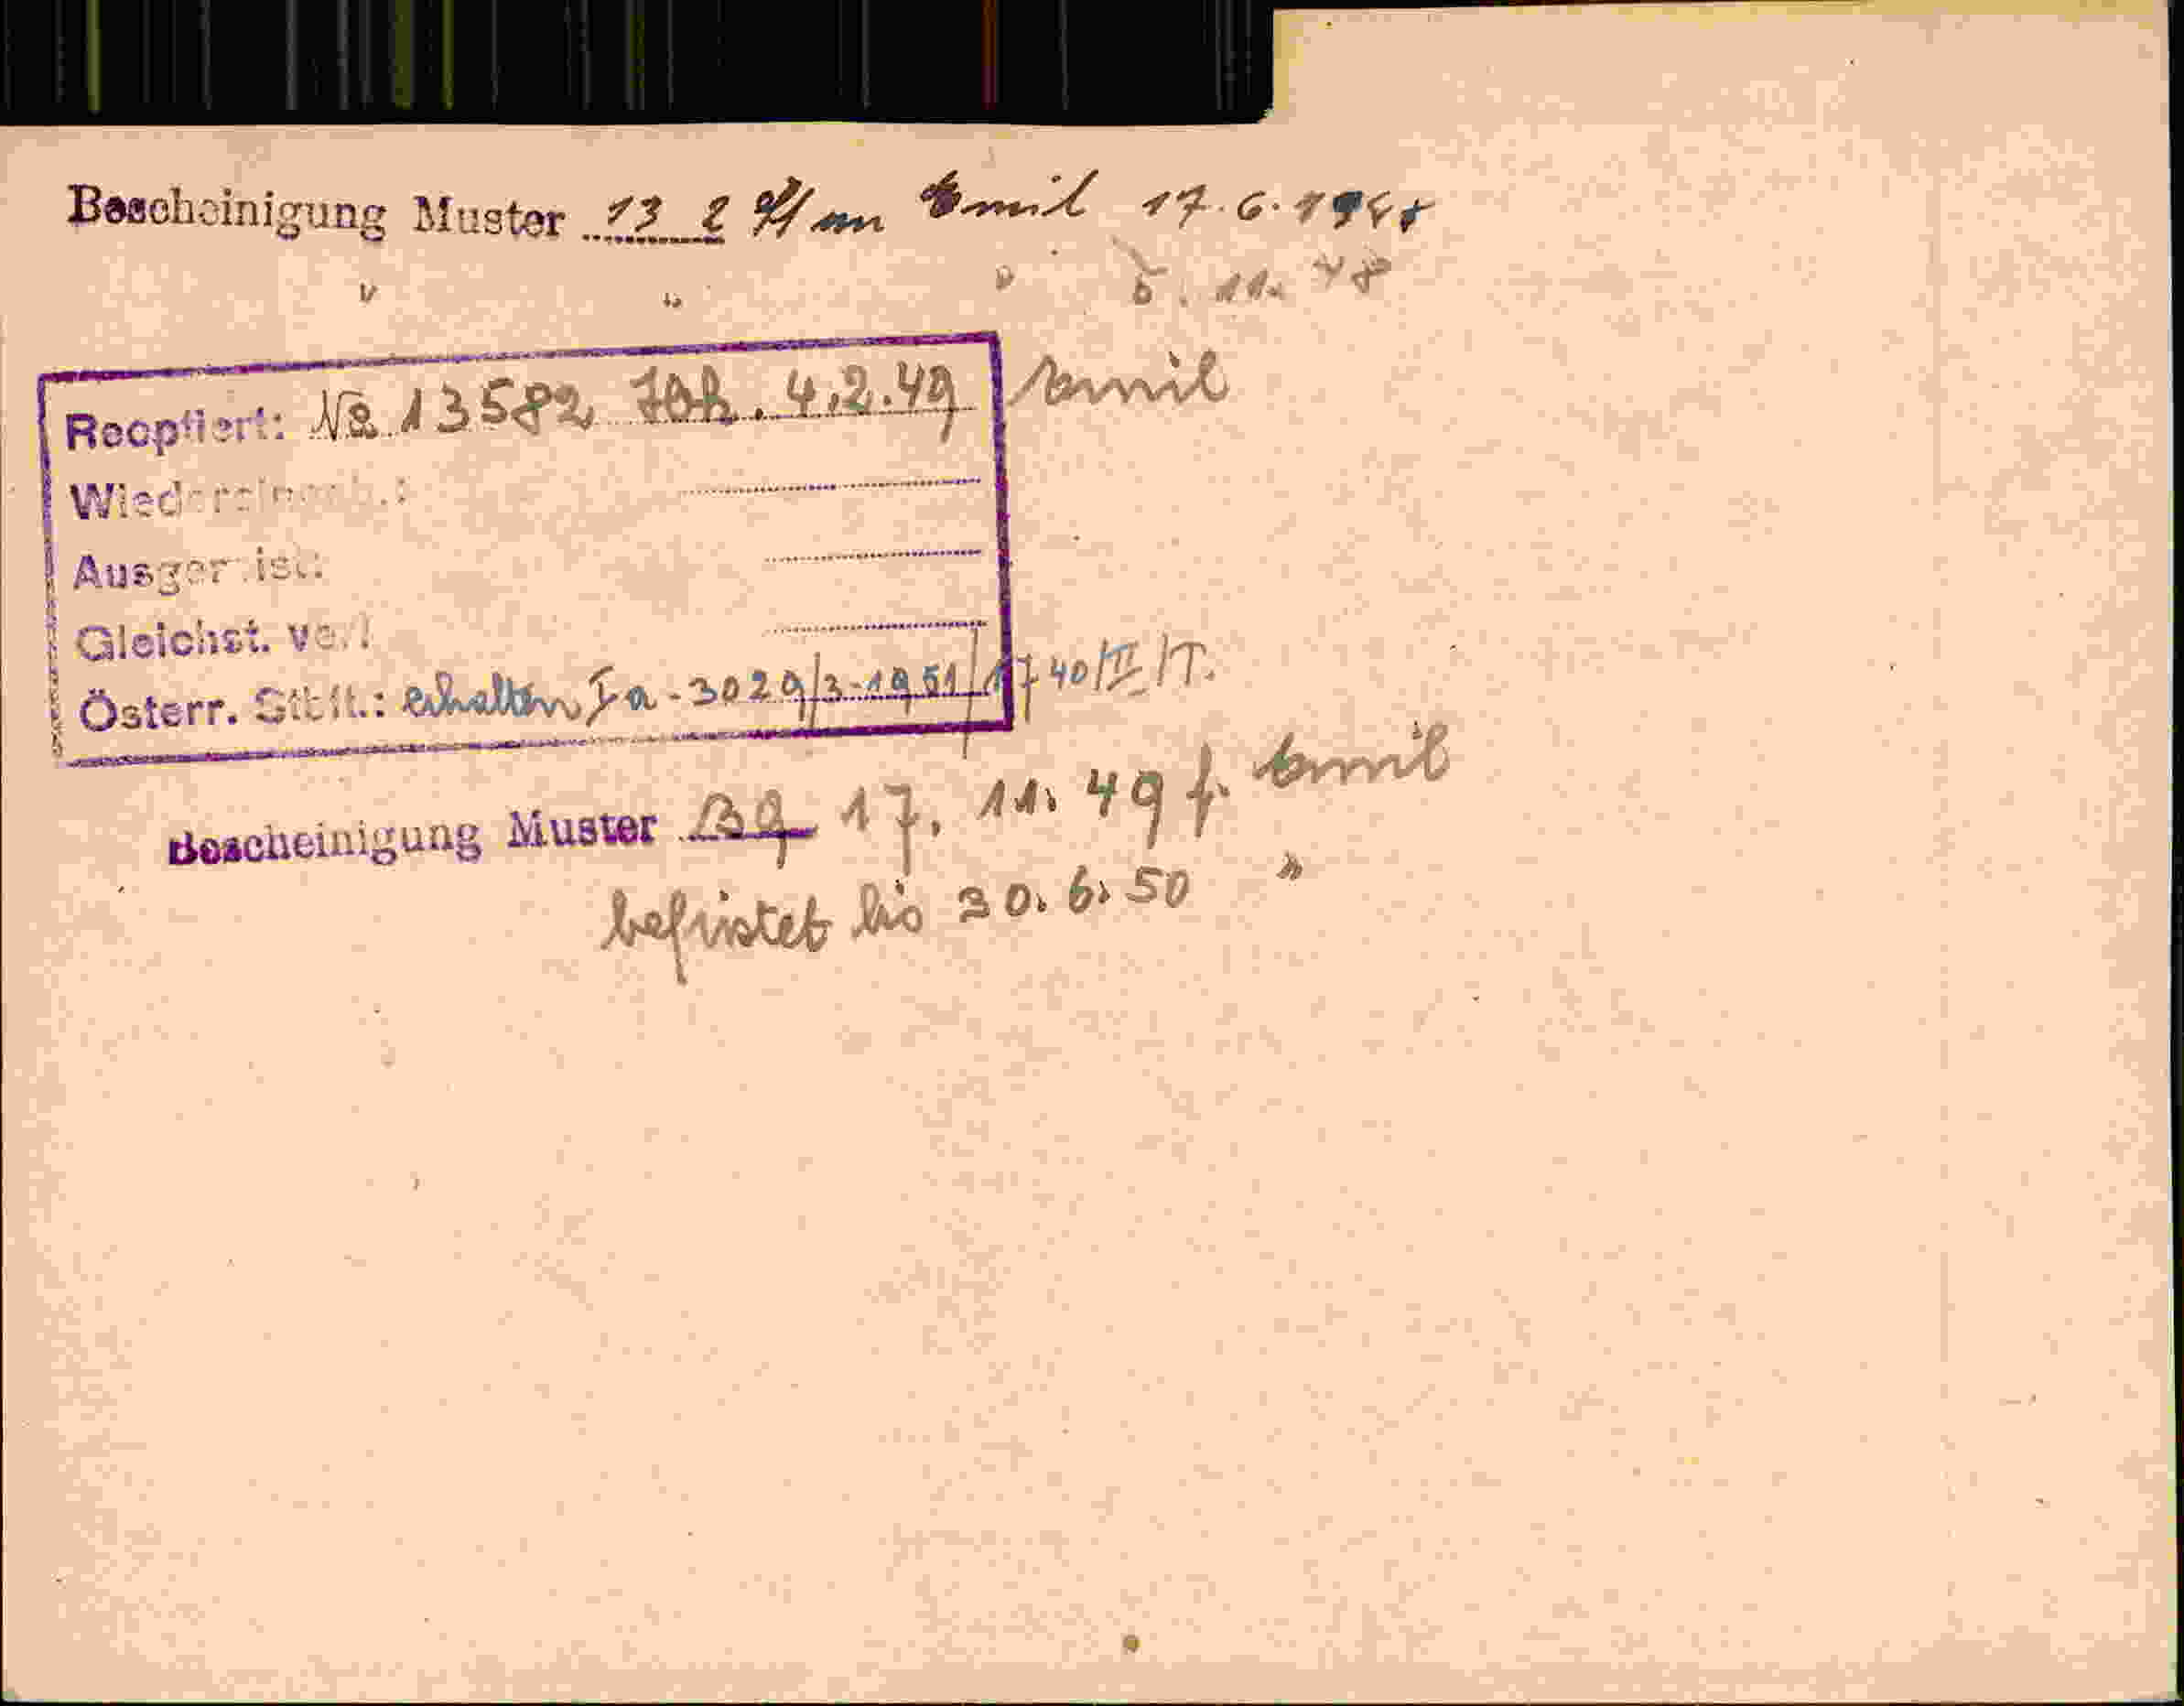 Bescheinigung Muster 13 2 Emil 17.6.1948
" " " 5. 11. 48
Reoptiert: No 13582 4.2.49 Emil
Wiedereinb.:
Ausgereist:
Gleichst. verl.
Österr. Stbft.: erhalten Ia-3029/3-1951/1740/II/T.
Bescheinigung Muster 17. 11. 49 f. Emil
befristet bis 30. 6. 50 "